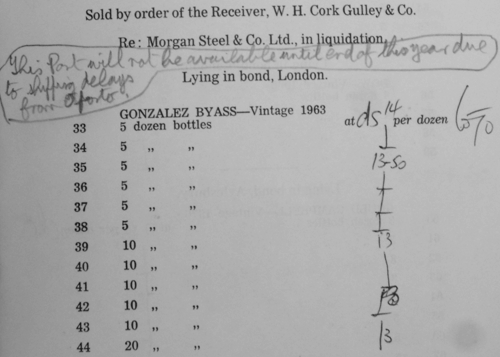 Sold by order of the Receiver, W. H. Cork Gulley & Co.
Re: Morgan Steel & Co. Ltd., in liquidation,
This Port will not be available until end of this year due
to shipping delays
from Oporto!
Lying in bond, London.
GONZALEZ BYASS—Vintage 1963
33 5 dozen bottles at ds 14 per dozen
34 5 ,, ,,
35 5 ,, ,, 13-50
36 5 ,, ,,
37 5 ,, ,,
38 5 ,, ,, 13
39 10 ,, ,,
40 10 ,, ,,
41 10 ,, ,,
42 10 ,, ,,
43 10 ,, ,, 13
44 20 ,, ,,